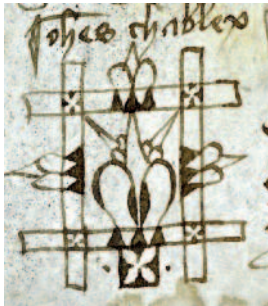 Johes chablex